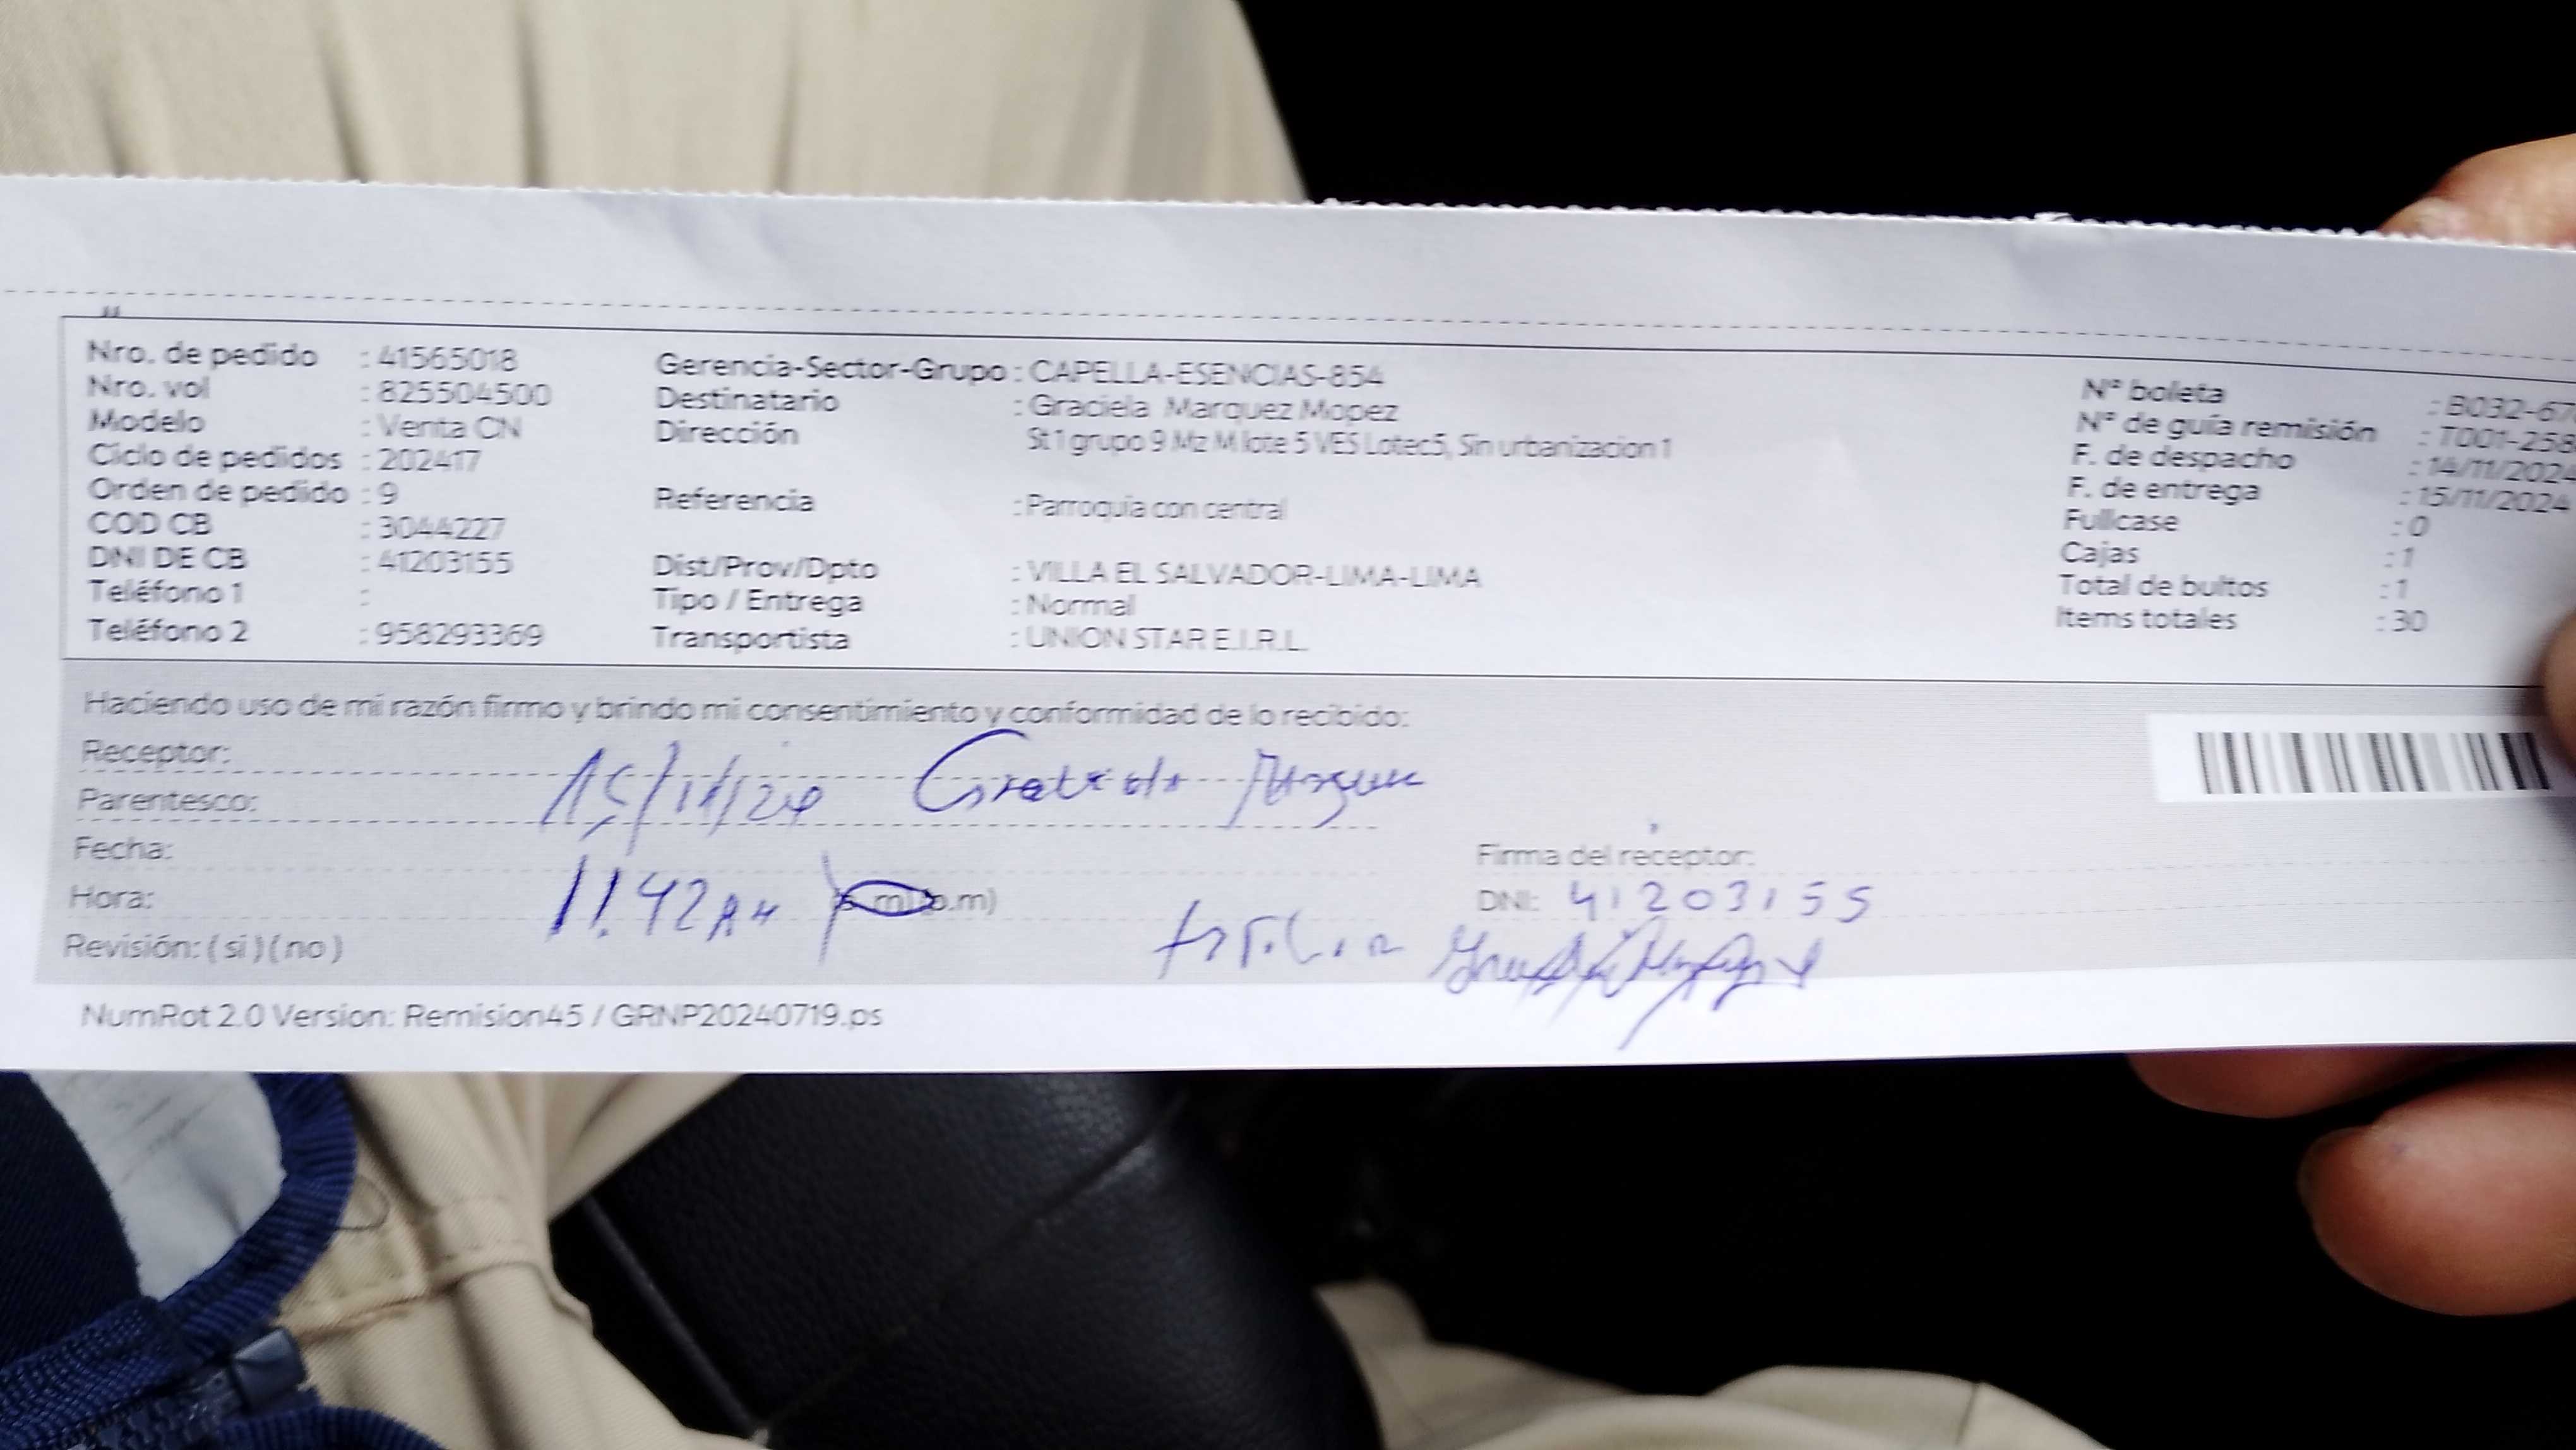 Nro. de pedido : 41565018
Nro. vol : 825504500
Modelo : Venta CN
Ciclo de pedidos : 202417
Orden de pedido : 9
COD CB : 3044227
DNI DE CB : 41203155
Teléfono 1 :
Teléfono 2 : 958293369
Gerencia-Sector-Grupo : CAPELLA-ESENCIAS-854
Destinatario : Graciela Marquez Mopez
Dirección St 1 grupo 9 Mz M lote 5 VES Lotec5, Sin urbanizacion 1
Referencia : Parroquia con central
Dist/Prov/Dpto : VILLA EL SALVADOR-LIMA-LIMA
Tipo / Entrega : Normal
Transportista : UNION STAR E.I.R.L.
N° boleta : B032-67
N° de guía remisión : T001-258
F. de despacho : 14/11/2024
F. de entrega : 15/11/2024
Fullcase : 0
Cajas : 1
Total de bultos : 1
Items totales : 30
Haciendo uso de mi razón firmo y brindo mi consentimiento y conformidad de lo recibido:
Receptor:
Parentesco: 15/11/24
Fecha:
Hora: 11.42 AM p.m)
Revisión: ( si ) ( no )
Firma del receptor:
DNI: 41203155
NumRot 2.0 Version: Remision45 / GRNP20240719.ps